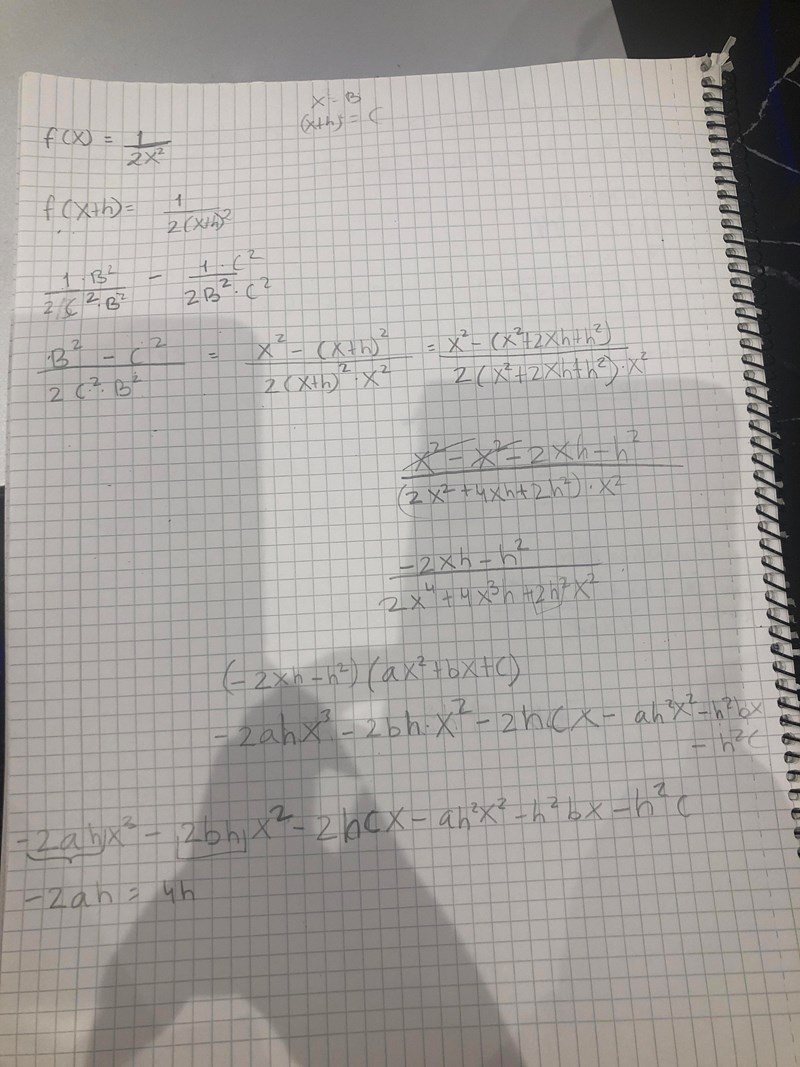 x = B
(x+h) = C
f(x) = 1/2x²
f(x+h) = 1/2(x+h)²
1·B²/2C²·B² − 1·C²/2B²·C²
B² − C²/2C²·B² = x² − (x+h)²/2(x+h)²·x² = x² − (x²+2xh+h²)/2(x²+2xh+h²)·x²
x² − x² − 2xh − h²/(2x²+4xh+2h²)·x²
−2xh − h²/2x⁴+4x³h+2h²x²
(−2xh − h²)(ax²+bx+c)
−2ahx³ − 2bh·x² − 2hCx − ah²x² − h²bx
− h²C
−2ahx³ − 2bhx² − 2hCx − ah²x² − h²bx − h²C
−2ah = 4h